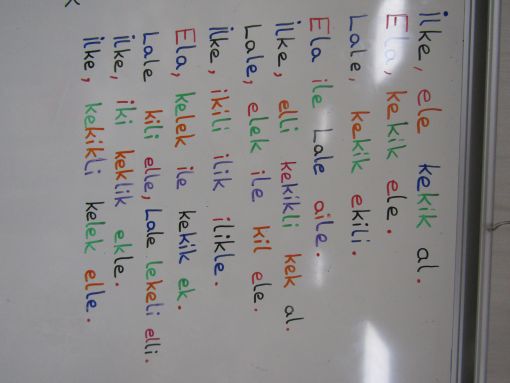 İlke, ele kekik al.
Ela, kekik ele.
Lale, kekik ekili.
Ela ile Lale aile.
İlke, elli kekikli kek al.
Lale, elek ile kil ele.
İlke, ikili ilik ilikle.
Ela, kelek ile kekik ek.
Lale kili elle, Lale lekeli elli.
İlke, iki keklik ekle.
İlke, kekikli kelek elle.